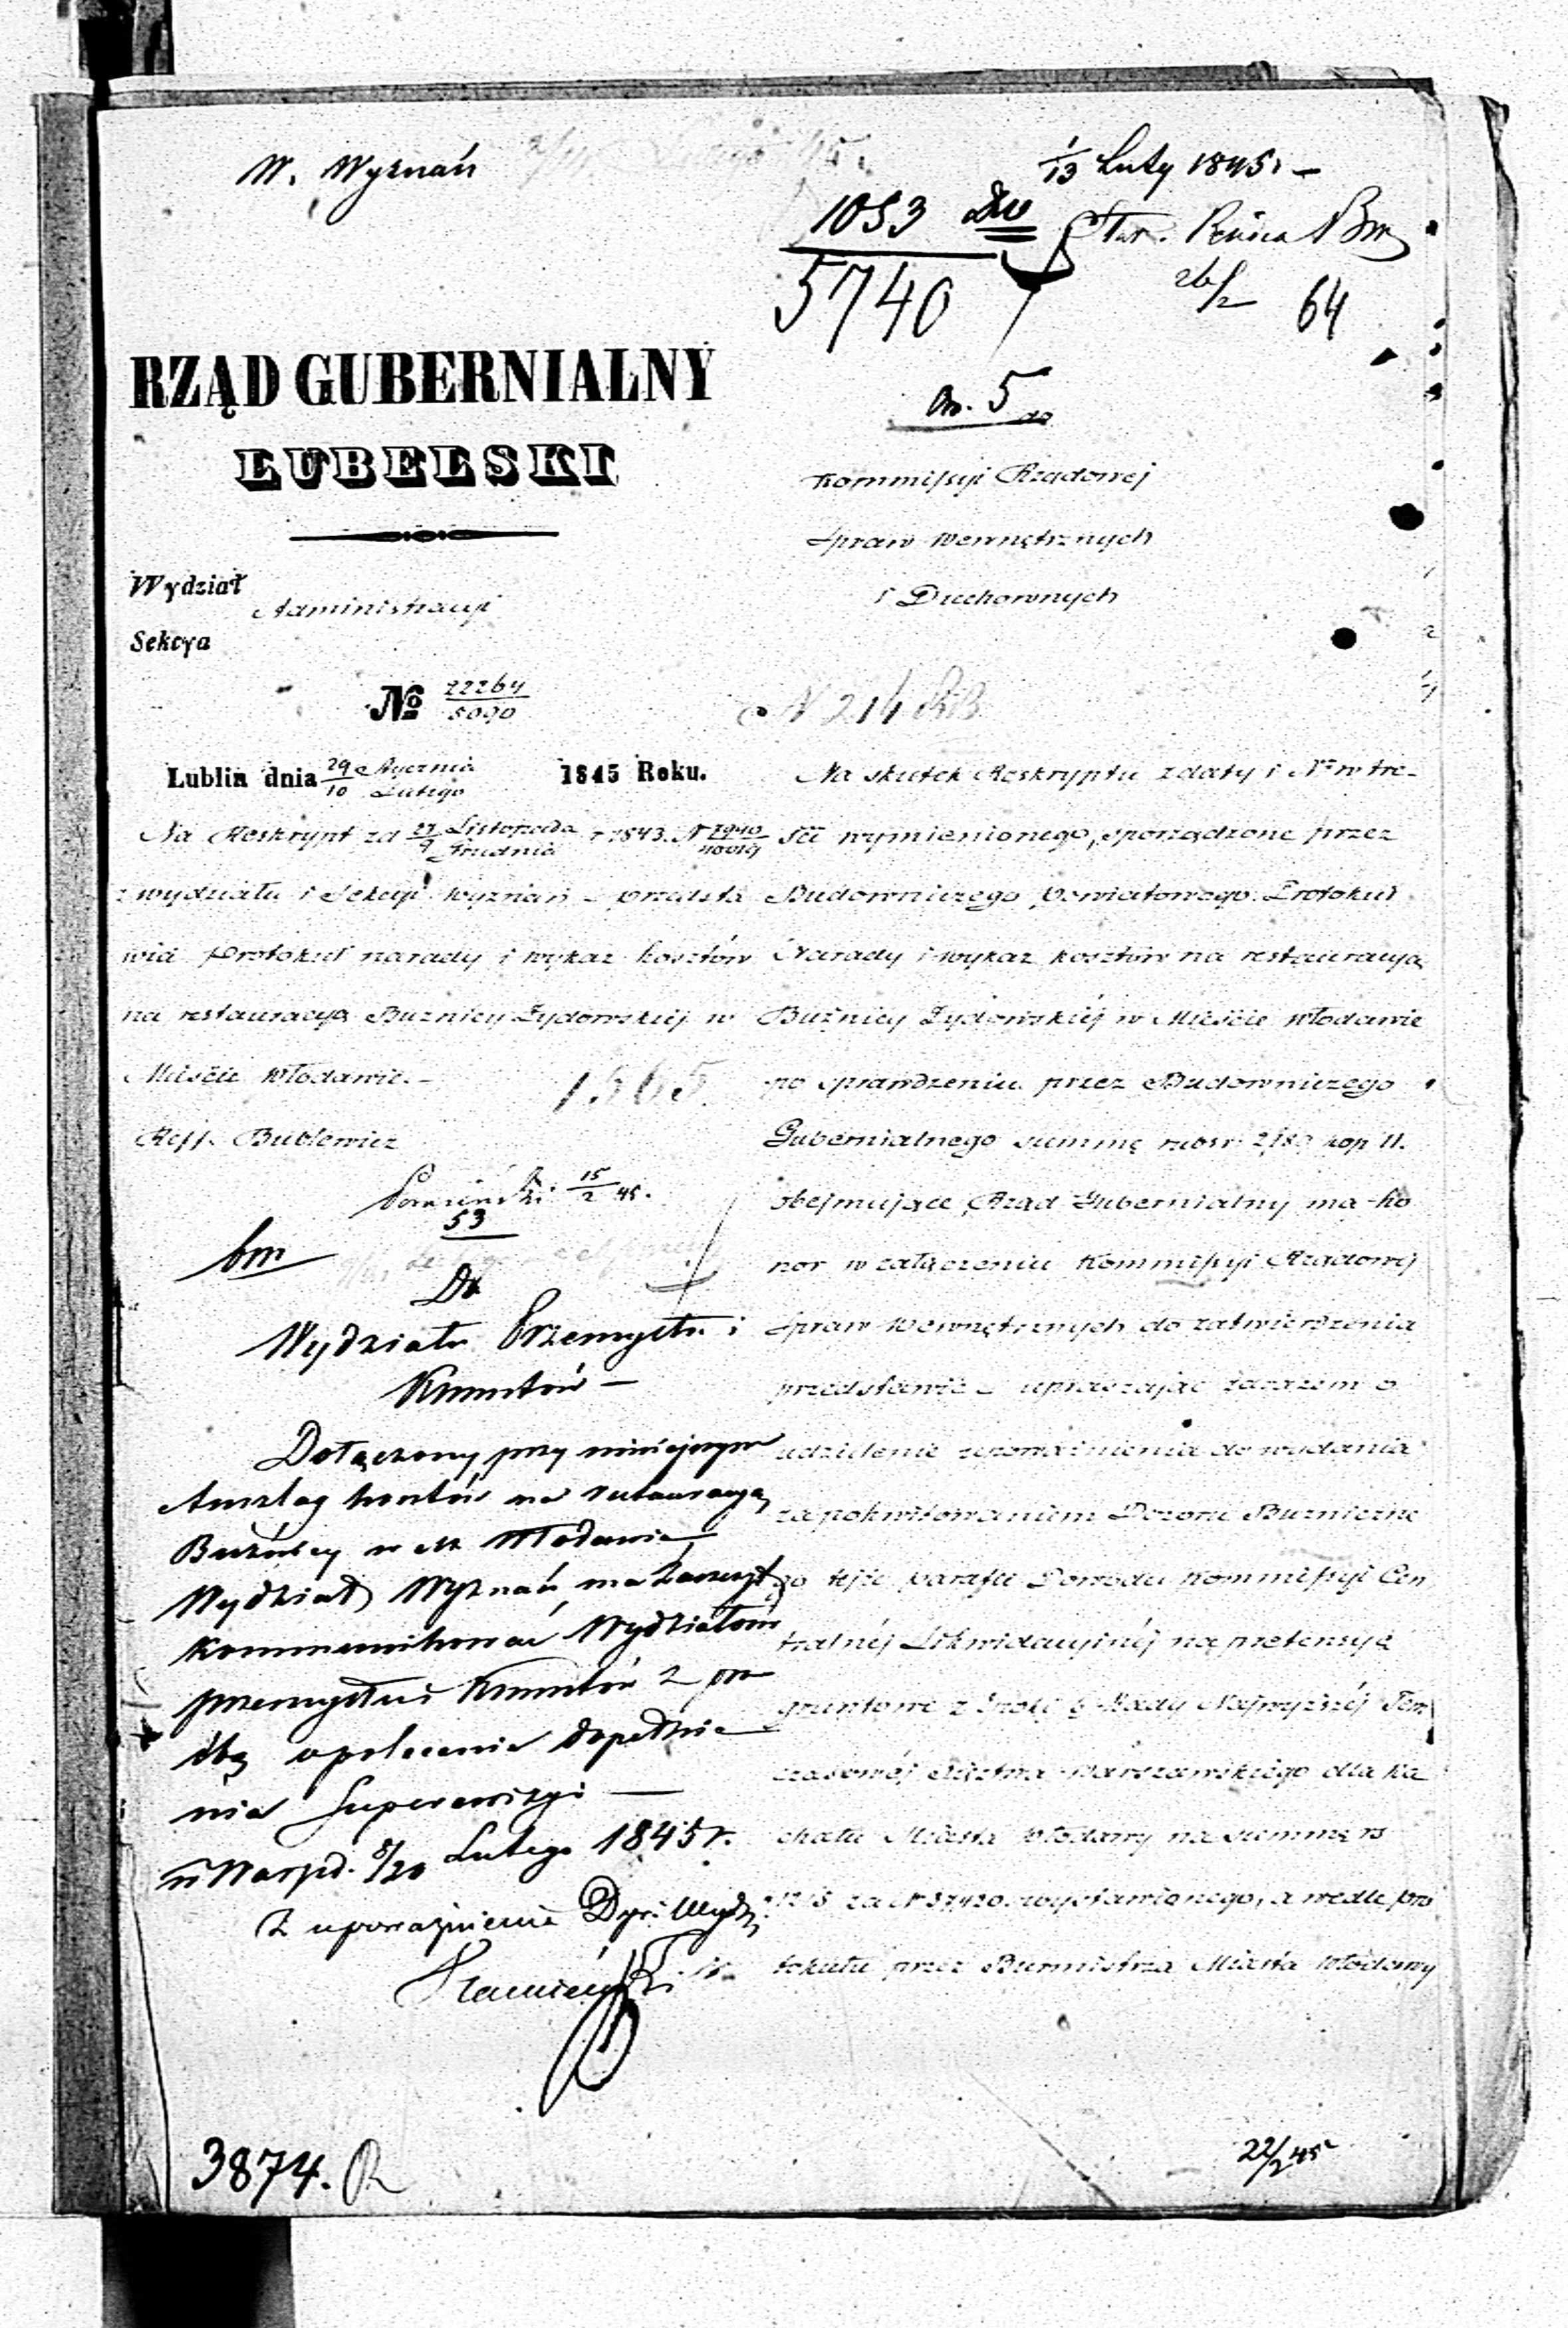 W. Wyznań
1/13 Luty 1845 r –
1053
5740
26/2 64
RZĄD GUBERNIALNY
LUBELSKI
5
do
Kommissyi Rządowej
Spraw Wewnętrznych
i Duchownych
Wydział Administracyi
Sekcya
No 22264/5090
N 214
Lublin dnia 29 Stycznia/10 Lutego 1845 Roku.
Na Reskrypt zd 27 Listopada/9 Grudnia r 1843. N
z wydziału i Sekcyi Wyznań – przedsta
wia Protokuł narady i wykaz kosztów
na restauracyą Buznicy Żydowskiej w
Mieście Włodawie. –
1565
Reff. Bublewicz
15/2 45.
53
bm
Do
Wydziału Przemysłu i
Kunsztów –
Dołączony przy niniejszym
Anszlag kosztów na restauracyą
Bużnicy w M. Włodawie
Wydział Wyznań ma zaszczyt
kommunikować Wydziałowi
przemysłu i Kunsztów z pro
śbą o polecenie dopełnie
nia Superrewizyi –
w Warszd. 8/20 Lutego 1845 r.
Z upoważnienia Dyr: Wydz.
Na skutek Reskryptu z daty i No w tre-
ści wymienionego, sporządzone przez
Budowniczego Powiatowego Protokuł
Narady i wykaz kosztów na restauracyą
Bużnicy Żydowskiéj w Mieście Włodawie
po sprawdzeniu przez Budowniczego
Gubernialnego summę rubsr kop 11.
obejmujące, Rząd Gubernialny ma ho
nor w załączeniu Kommissyi Rządowej
Spraw Wewnętrznych do zatwierdzenia
przedstawić – upraszając zarazem o
udzielenie upoważnienia do wydania
za pokwitowaniem Dozoru Buznicze
go tejże parafii Dowodu Kommissyi Cen
tralnéj Likwidacyinéj na pretensyją
gruntowe z Rady Najwyższéj Tym
czasowéj Xięztwa Warszawskiego dla Ka
chału Miasta Włodawy na summę rs
za N 37,420. wystawionego, a wedle pro
tokułu przez Burmistrza Miasta Włodawy
3874.
22/2 45